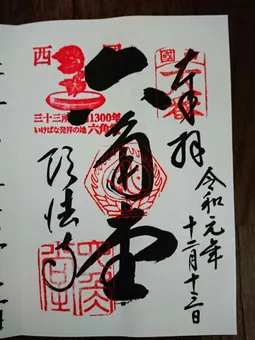 奉拝
令和元年
十二月十三日
六角堂
頂法寺
三十三所
1300年
いけばな発祥の地 六角
西